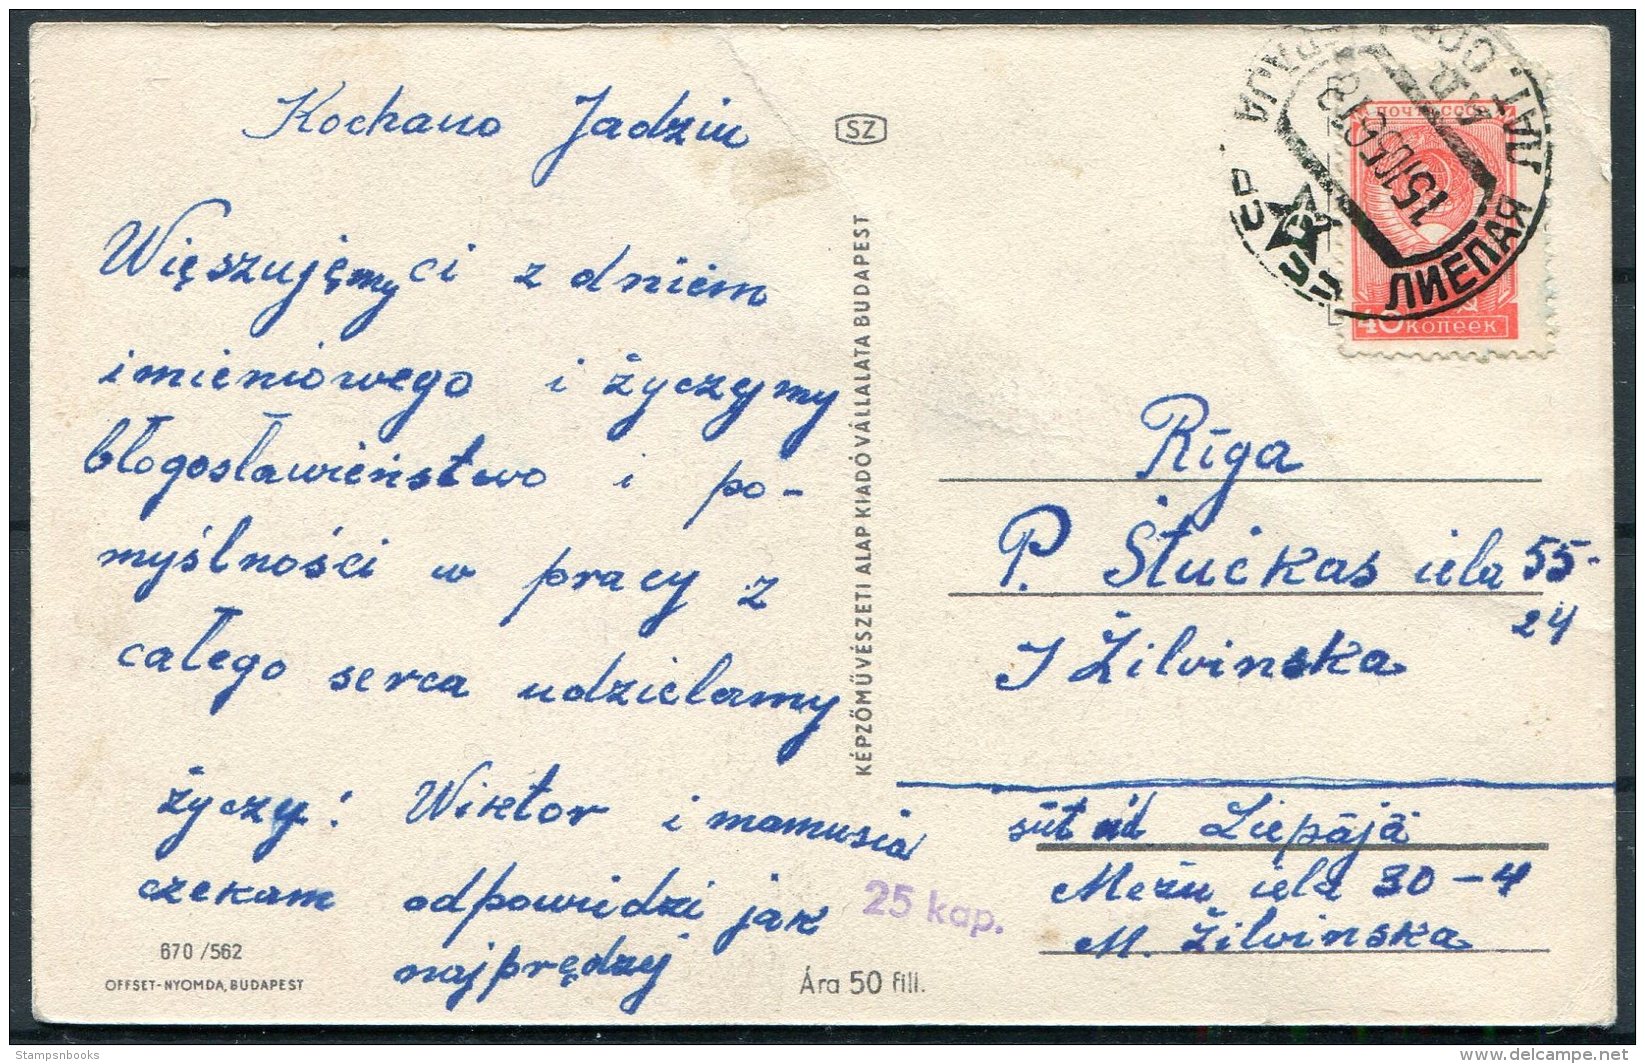 Kochano Jadziu
Więszujęmy ci z dniem
imieniowego i życzymy
błogosławieństwo i po-
myślności w pracy z
całego serca udzielamy
życzy: Wiktor i mamusia
czekam odpowidzi jak
najprędzej
670/562
OFFSET-NYOMDA, BUDAPEST
SZ
KÉPZŐMŰVÉSZETI ALAP KIADÓVÁLLALATA BUDAPEST
25 kap.
Ára 50 fill.
ПОЧТА СССР
40 КОПЕЕК
ЛИЕПАЯ ЛАТ. ССР
15 10 56
Rīga
P. Stučkas iela 55-
24
J Žilvinska
sūt Liepājā
Mežu iela 30-4
M. Žilvinska
Stampsnbooks
delcampe.net